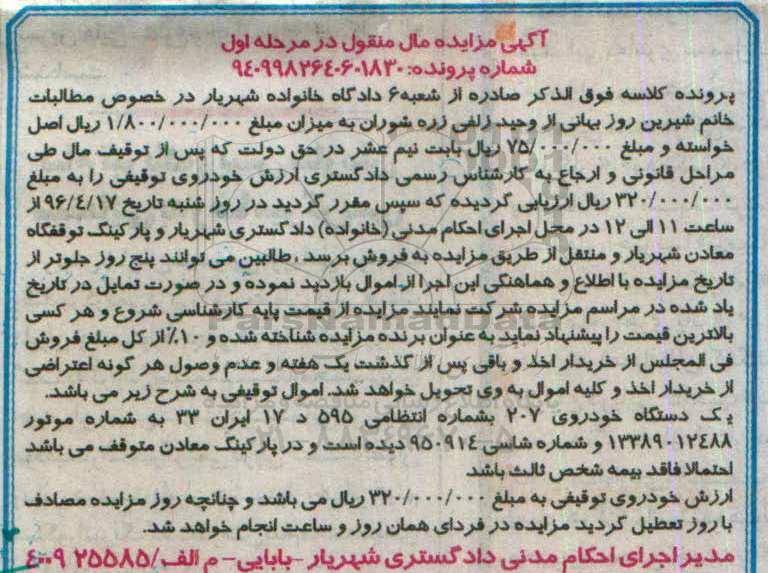 آگهی مزایده مال منقول در مرحله اول
شماره پرونده: ۹۴۰۹۹۸۲۶۴۰۶۰۱۸۳۰
پرونده کلاسه فوق الذکر صادره از شعبه۶ دادگاه خانواده شهریار در خصوص مطالبات
خانم شیرین روز بهانی از وحید زلفی زره شوران به میزان مبلغ ۱/۸۰۰/۰۰۰/۰۰۰ ریال اصل
خواسته و مبلغ ۷۵/۰۰۰/۰۰۰ ریال بابت نیم عشر در حق دولت که پس از توقیف مال طی
مراحل قانونی و ارجاع به کارشناس رسمی دادگستری ارزش خودروی توقیفی را به مبلغ
۳۲۰/۰۰۰/۰۰۰ ریال ارزیابی گردیده که سپس مقرر گردید در روز شنبه تاریخ ۹۶/۴/۱۷ از
ساعت ۱۱ الی ۱۲ در محل اجرای احکام مدنی (خانواده) دادگستری شهریار و پارکینگ توقفگاه
معادن شهریار و منتقل از طریق مزایده به فروش برسد ، طالبین می توانند پنج روز جلوتر از
تاریخ مزایده با اطلاع و هماهنگی این اجرا از اموال بازدید نموده و در صورت تمایل در تاریخ
یاد شده در مراسم مزایده شرکت نمایند مزایده از قیمت پایه کارشناسی شروع و هر کسی
بالاترین قیمت را پیشنهاد نماید به عنوان برنده مزایده شناخته شده و ۱۰٪ از کل مبلغ فروش
فی المجلس از خریدار اخذ و باقی پس از گذشت یک هفته و عدم وصول هر گونه اعتراضی
از خریدار اخذ و کلیه اموال به وی تحویل خواهد شد. اموال توقیفی به شرح زیر می باشد.
یک دستگاه خودروی ۲۰۷ بشماره انتظامی ۵۹۵ د ۱۷ ایران ۳۳ به شماره موتور
۱۳۳۸۹۰۱۲۴۸۸ و شماره شاسی ۹۵۰۹۱۴ دیده است و در پارکینگ معادن متوقف می باشد
احتمالا فاقد بیمه شخص ثالث باشد
ارزش خودروی توقیفی به مبلغ ۳۲۰/۰۰۰/۰۰۰ ریال می باشد و چنانچه روز مزایده مصادف
با روز تعطیل گردید مزایده در فردای همان روز و ساعت انجام خواهد شد.
مدیر اجرای احکام مدنی دادگستری شهریار -بابایی- م الف/۲۵۵۸۵ ۴۰۰۹
ParsNamadData